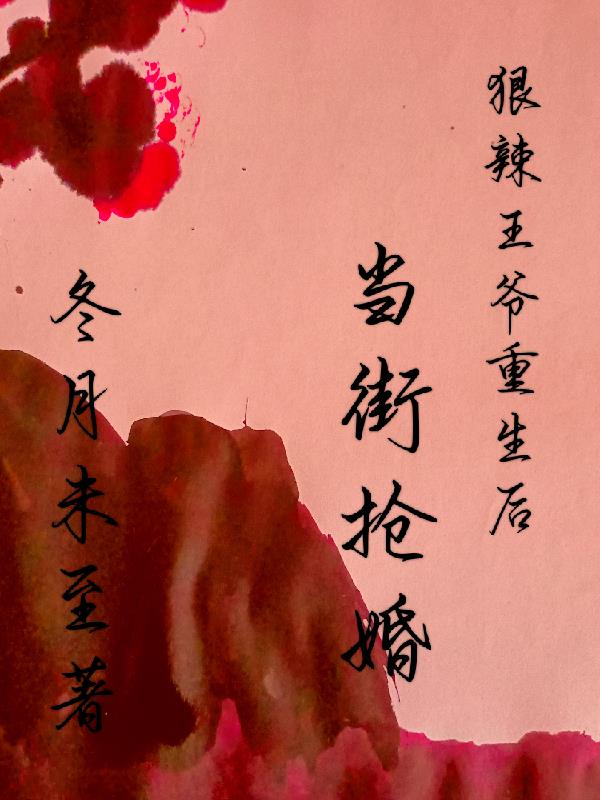 狠辣王爷重生后
当街抢婚
冬月未至著